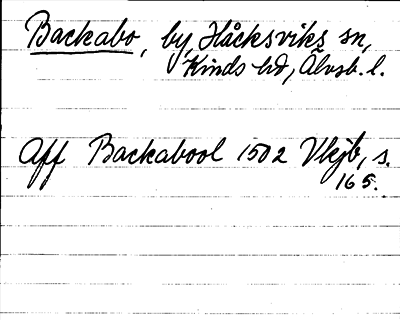 Backabo, by, Håcksviks sn,
Kinds hd, Älvsb. l.
Aff Backabool 1502 Vkjb, s.
165.